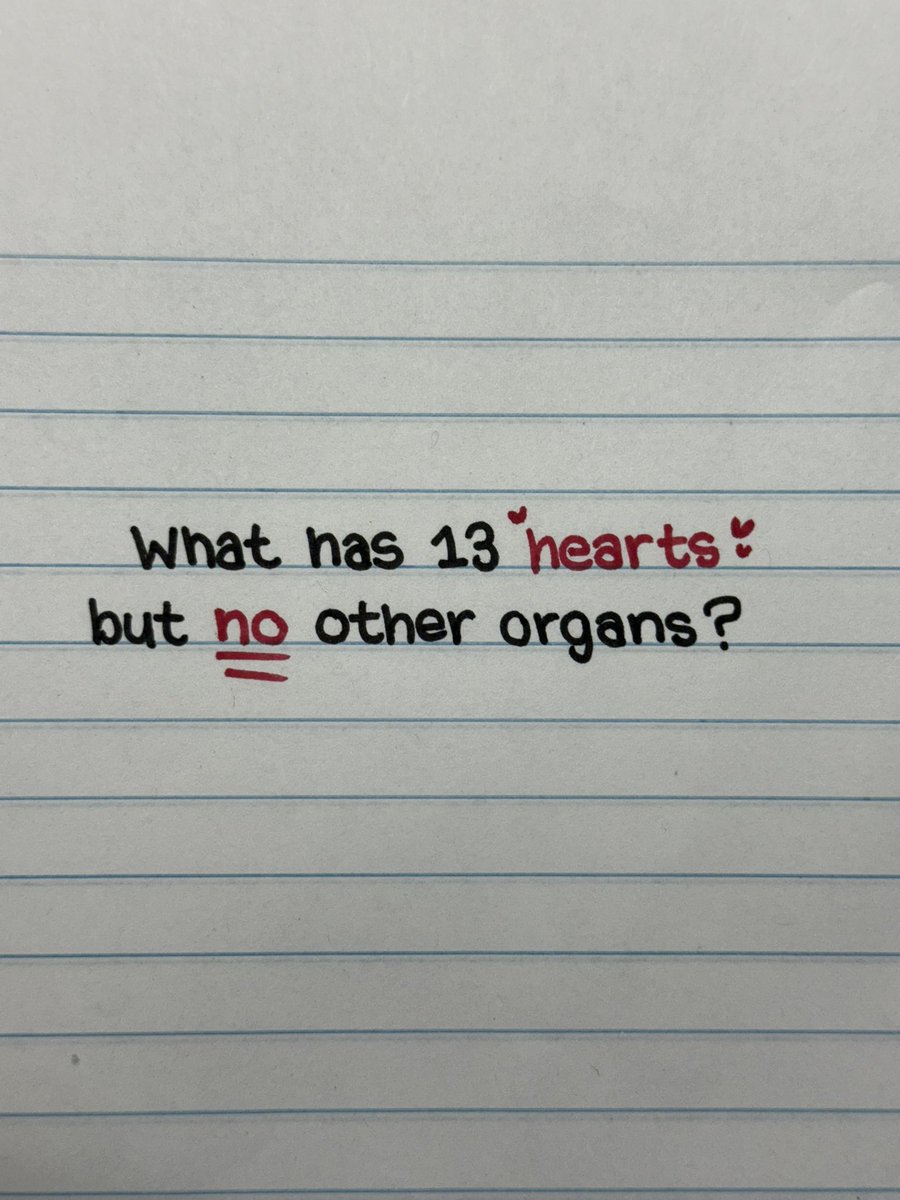 What has 13 hearts
but no other organs?